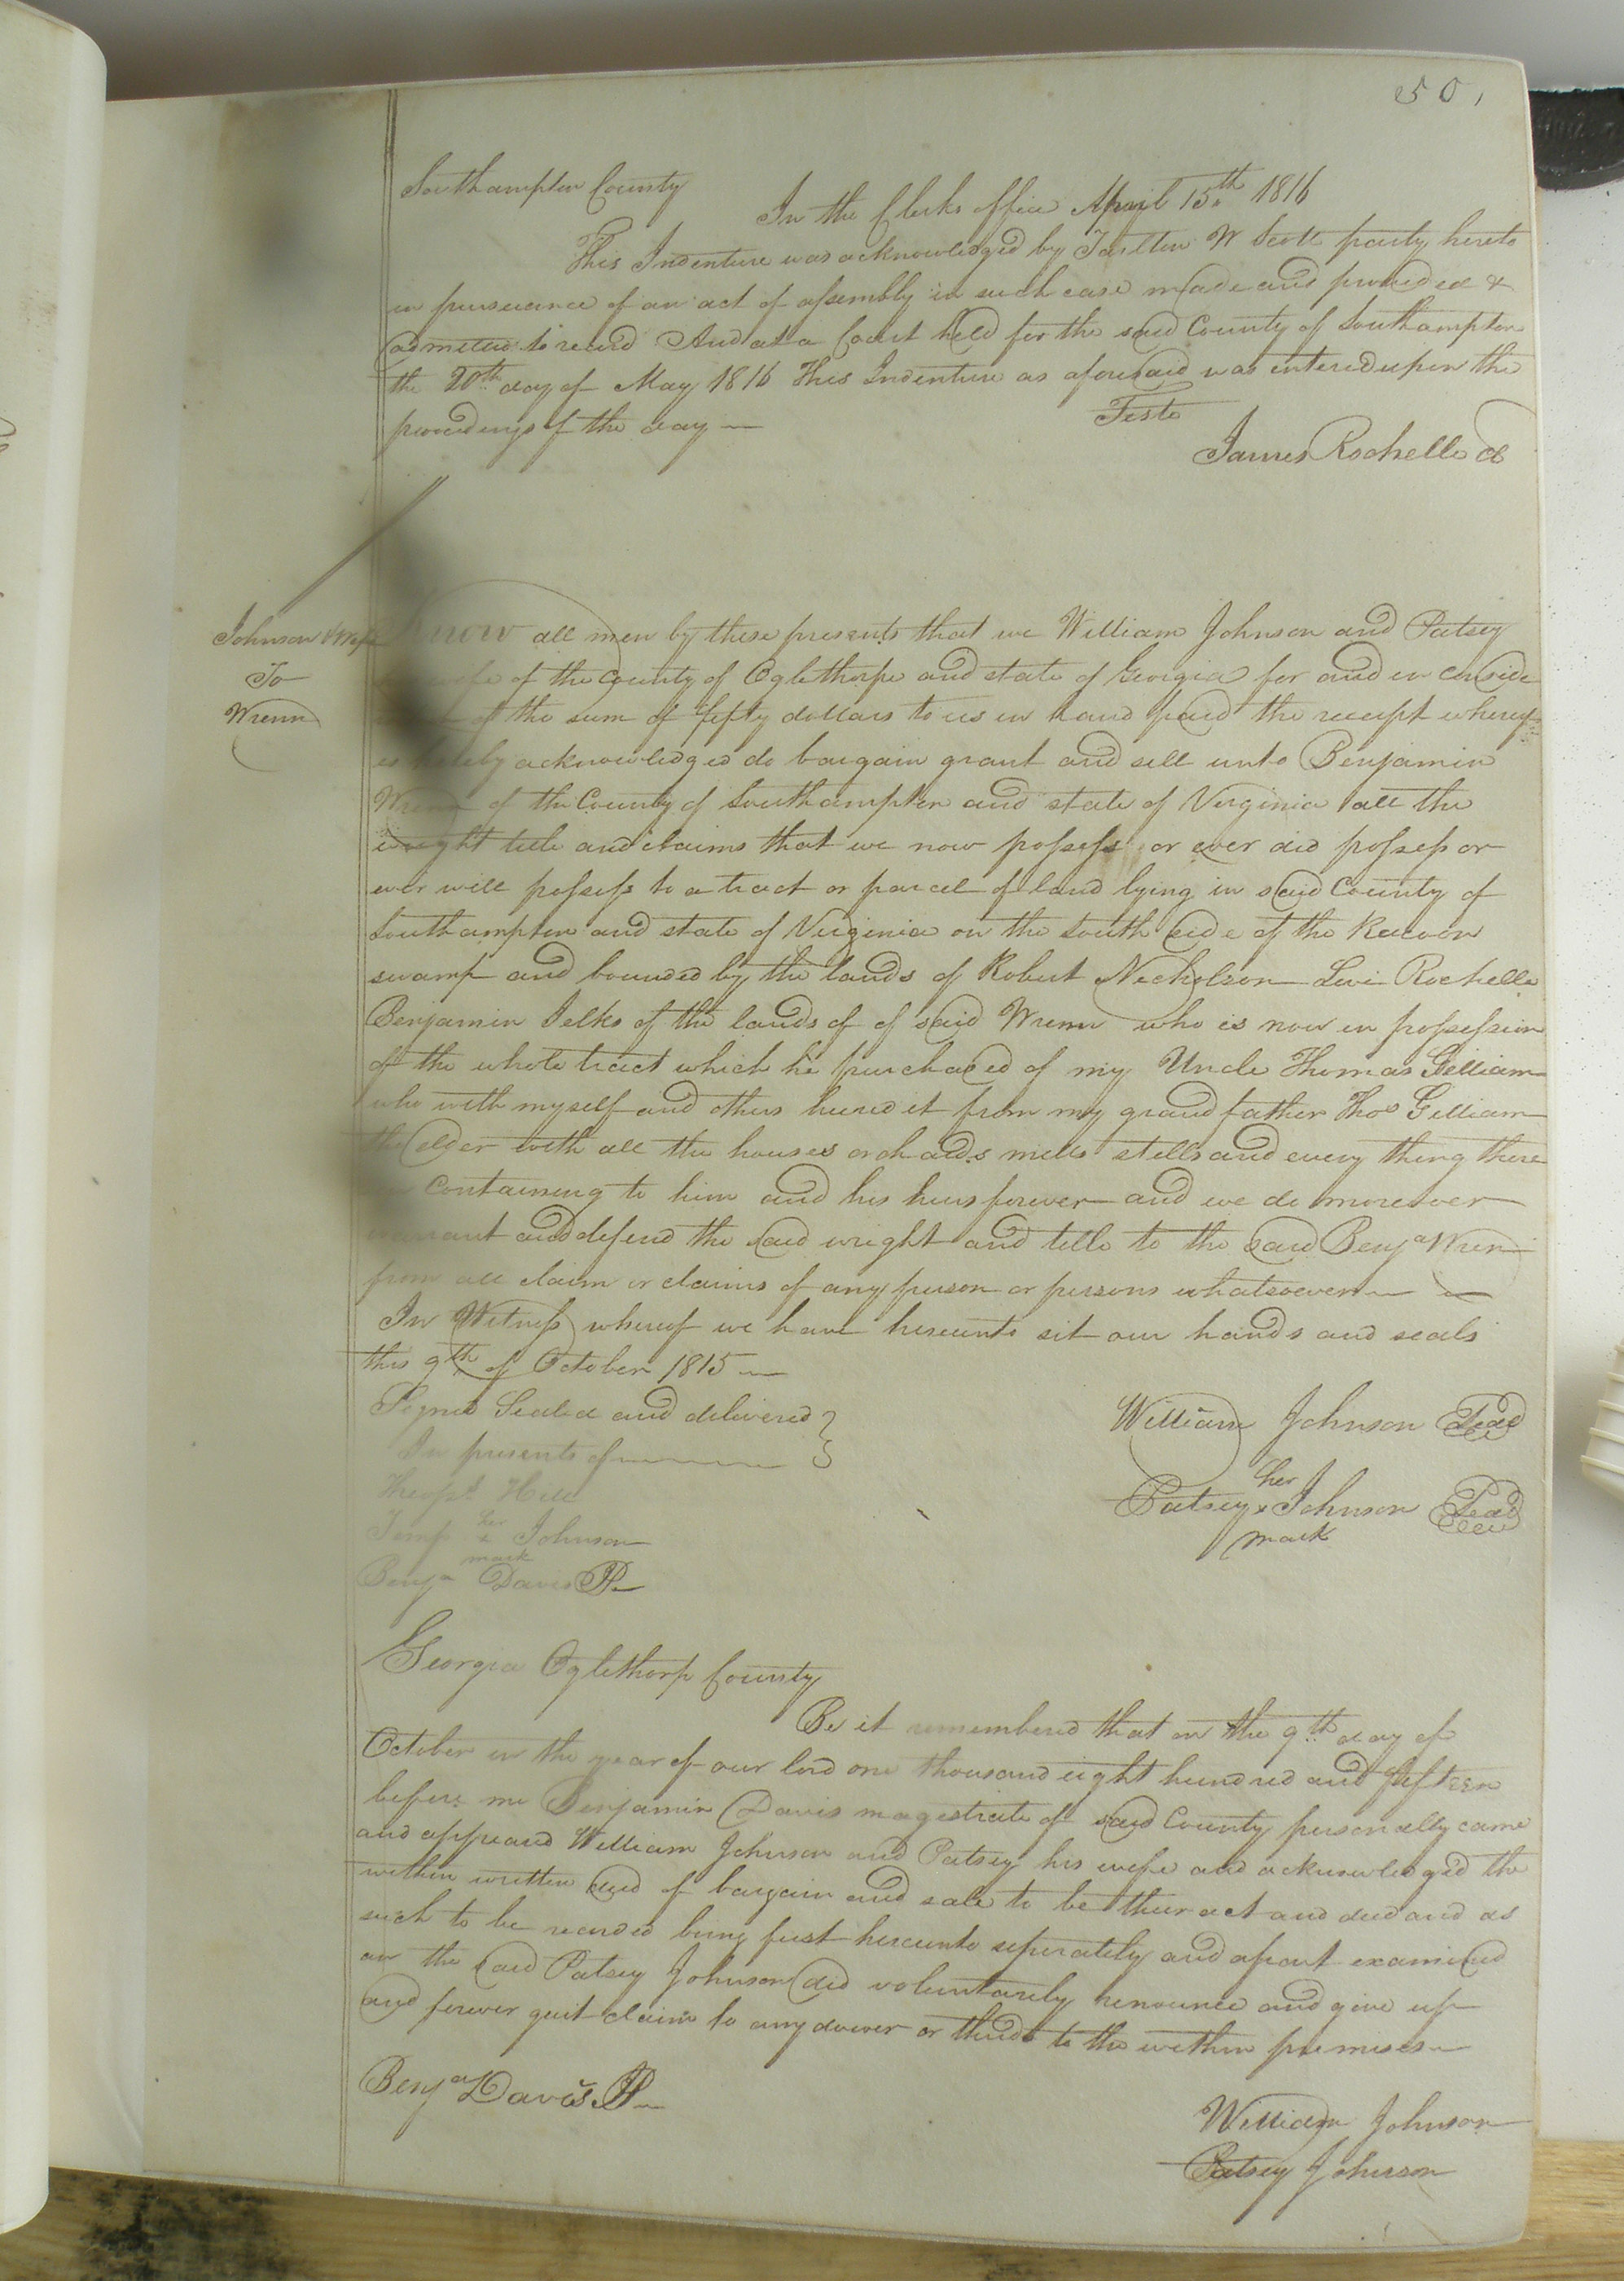 50,
Southampton County
In the Clerks office April 15th 1816
This Indenture was acknowledged by Tarlton W Scott party hereto
in pursuance of an act of assembly in such case made and provided &
admitted to record And at a Court held for the said County of Southampton
the 20th day of May 1816 This Indenture as aforesaid was entered upon the
proceedings of the day
Teste
James Rochelle Cl
Johnson & wife
To
Wrenn
Know all men by these presents that we William Johnson and Patsey
wife of the County of Oglethorpe and state of Georgia for and in conside
of the sum of fifty dollars to us in hand paid the receipt whereof
is hereby acknowledged do bargain grant and sell unto Benjamin
Wrenn of the County of Southampton and state of Virginia all the
wright title and claims that we now possess or ever did possess or
ever will possess to a tract or parcel of land lying in said County of
Southampton and state of Virginia on the South side of the Racoon
swamp and bounded by the lands of Robert Nicholson Levi Rochelle
Benjamin Jelks of the lands of of said Wrenn who is now in possession
of the whole tract which he purchased of my Uncle Thomas Gilliam
who with myself and others heired it from my grandfather Thos Gilliam
the elder with all the houses orchards mills stills and every thing there
in containing to him and his heirs forever and we do moreover
warrant and defend the said wright and title to the said Benja Wren
from all claim or claims of any person or persons whatsoever
In Witness whereof we have hereunto sit our hands and seals
this 9th of October 1815
Signed Sealed and delivered
In presents of
Theopl Hill
Temp her x Johnson
mark
Benja Davis JP
William Johnson Seal
her
Patsey x Johnson Seal
mark
Georgia Oglethorp County
Be it remembered that on the 9th day of
October in the year of our lord one thousand eight hundred and fifteen
before me Benjamin Davis magestrate of said County personally came
and appeared William Johnson and Patsey his wife and acknowledged the
within written deed of bargain and sale to be their act and deed and as
such to be recorded being first hereunto seperately and apart examined
an the said Patsey Johnson did voluntarily renounce and give up
and forever quit claim to any dower or thirds to the within premises
Benja Davis JP
William Johnson
Patsey Johnson